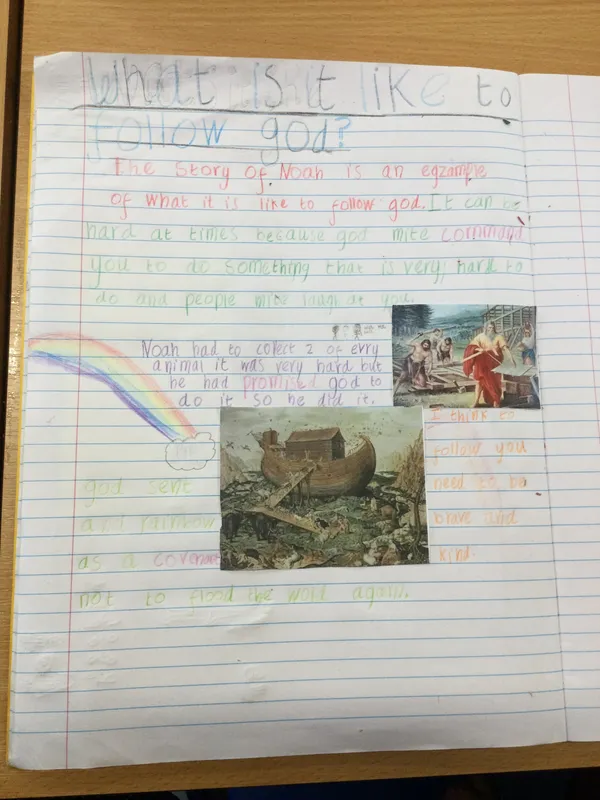 What is it like to
follow god?
The Story of Noah is an egzample
of what it is like to follow god. It can be
hard at times because god mite command
you to do something that is very hard to
do and people mite laugh at you.
Noah had to collect 2 of evry
animal it was very hard but
he had promised god to
do it so he did it.
I think to
follow you
need to be
brave and
kind.
god sent
and rainbow
as a covenant
not to flood the word again.